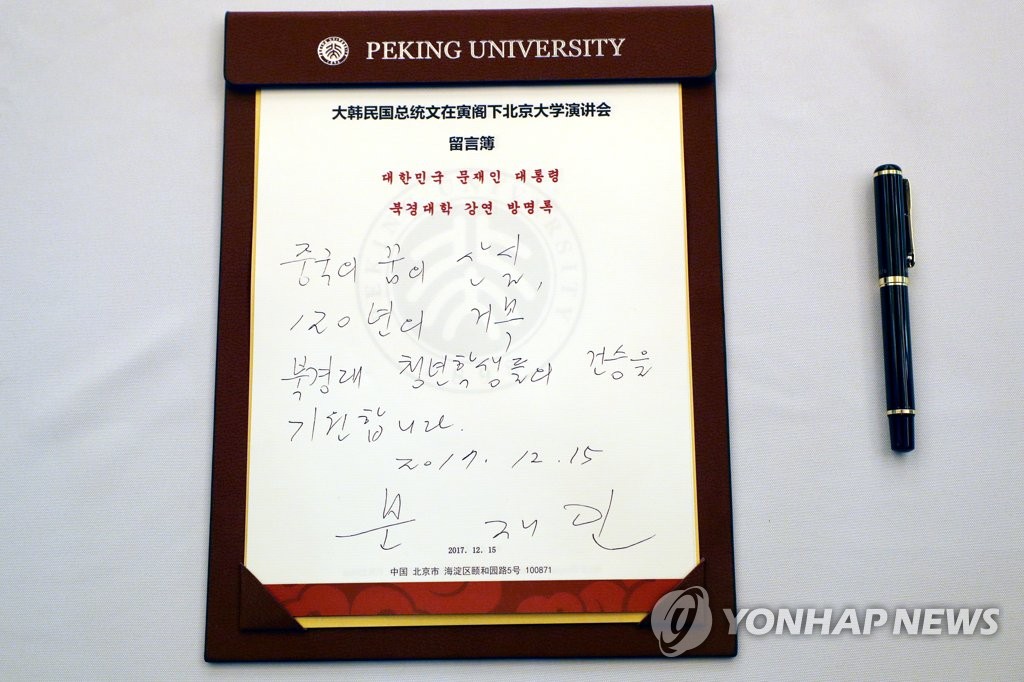 PEKING UNIVERSITY
大韩民国总统文在寅阁下北京大学演讲会
留言簿
대한민국 문재인 대통령
북경대학 강연 방명록
중국의 꿈의 산실,
120년의 거목,
북경대 청년학생들의 건승을
기원합니다.
2017. 12. 15
문 재 인
2017. 12. 15
中国 北京市 海淀区颐和园路5号 100871
YONHAP NEWS